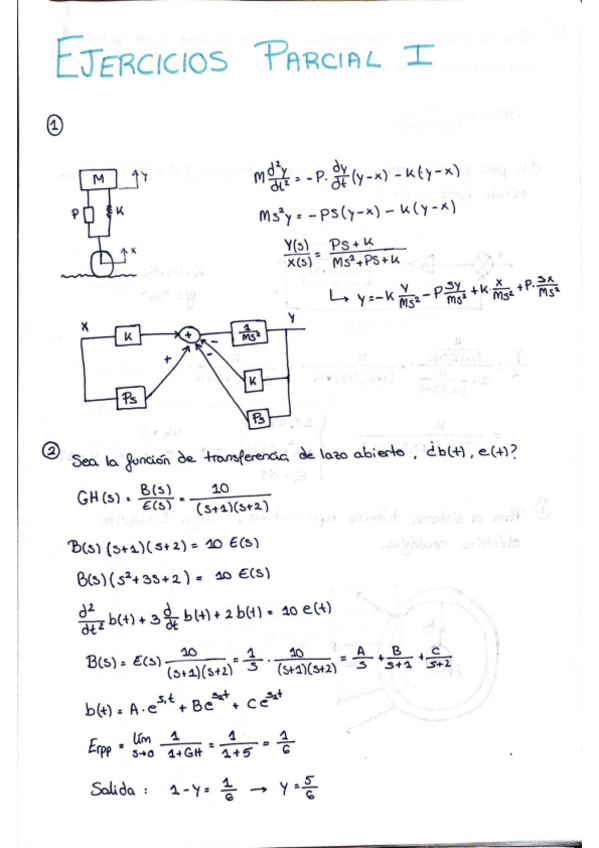 EJERCICIOS PARCIAL I
①
M
Y
P
K
x
M d²y/dt² = -P · dy/dt (y-x) - K(y-x)
Ms²y = -PS(y-x) - K(y-x)
Y(s)/X(s) = PS+K / MS²+PS+K
↳ y = -K Y/MS² - P SY/MS² + K · X/MS² + P · SX/MS²
X
K
+
1/MS²
Y
+
-
-
PS
K
PS
② Sea la función de transferencia de lazo abierto, ¿b(t), e(t)?
GH(s) = B(s)/E(s) = 10/(s+1)(s+2)
B(s)(s+1)(s+2) = 10 E(s)
B(s)(s²+3s+2) = 10 E(s)
d²/dt² b(t) + 3 d/dt b(t) + 2 b(t) = 10 e(t)
B(s) = E(s) 10/(s+1)(s+2) = 1/s · 10/(s+1)(s+2) = A/s + B/s+1 + C/s+2
b(t) = A·e^s₁t + Be^s₂t + Ce^s₂t
Erpp = lím s→0 1/1+GH = 1/1+5 = 1/6
Salida : 1-y = 1/6 → y = 5/6